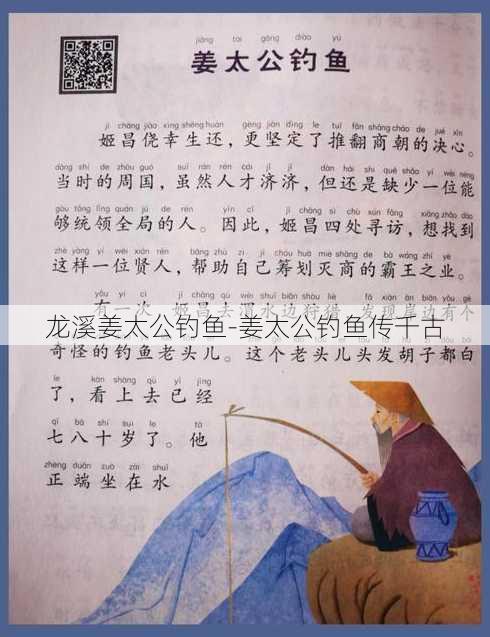 jiāng tài gōng diào yú
姜太公钓鱼
jī chāng jiǎo xìng shēng huán gèng jiān dìng le tuī fān shāng cháo de jué xīn
姬昌侥幸生还，更坚定了推翻商朝的决心。
dāng shí de zhōu guó suī rán rén cái jǐ jǐ dàn hái shì quē shǎo yí wèi néng
当时的周国，虽然人才济济，但还是缺少一位能
gòu tǒng lǐng quán jú de rén yīn cǐ jī chāng sì chù xún fǎng xiǎng zhǎo dào
够统领全局的人。因此，姬昌四处寻访，想找到
zhè yàng yí wèi xián rén bāng zhù zì jǐ chóu huà miè shāng de bà wáng zhī yè
这样一位贤人，帮助自己筹划灭商的霸王之业。
有一次，姬昌去渭水边狩猎，发现岸边有个
龙溪姜太公钓鱼-姜太公钓鱼传千古
奇怪的钓鱼老头儿。这个老头儿头发胡子都白
le kàn shàng qù yǐ jīng
了，看上去已经
qī bā shí suì le tā
七八十岁了。他
zhèng duān zuò zài shuǐ
正端坐在水